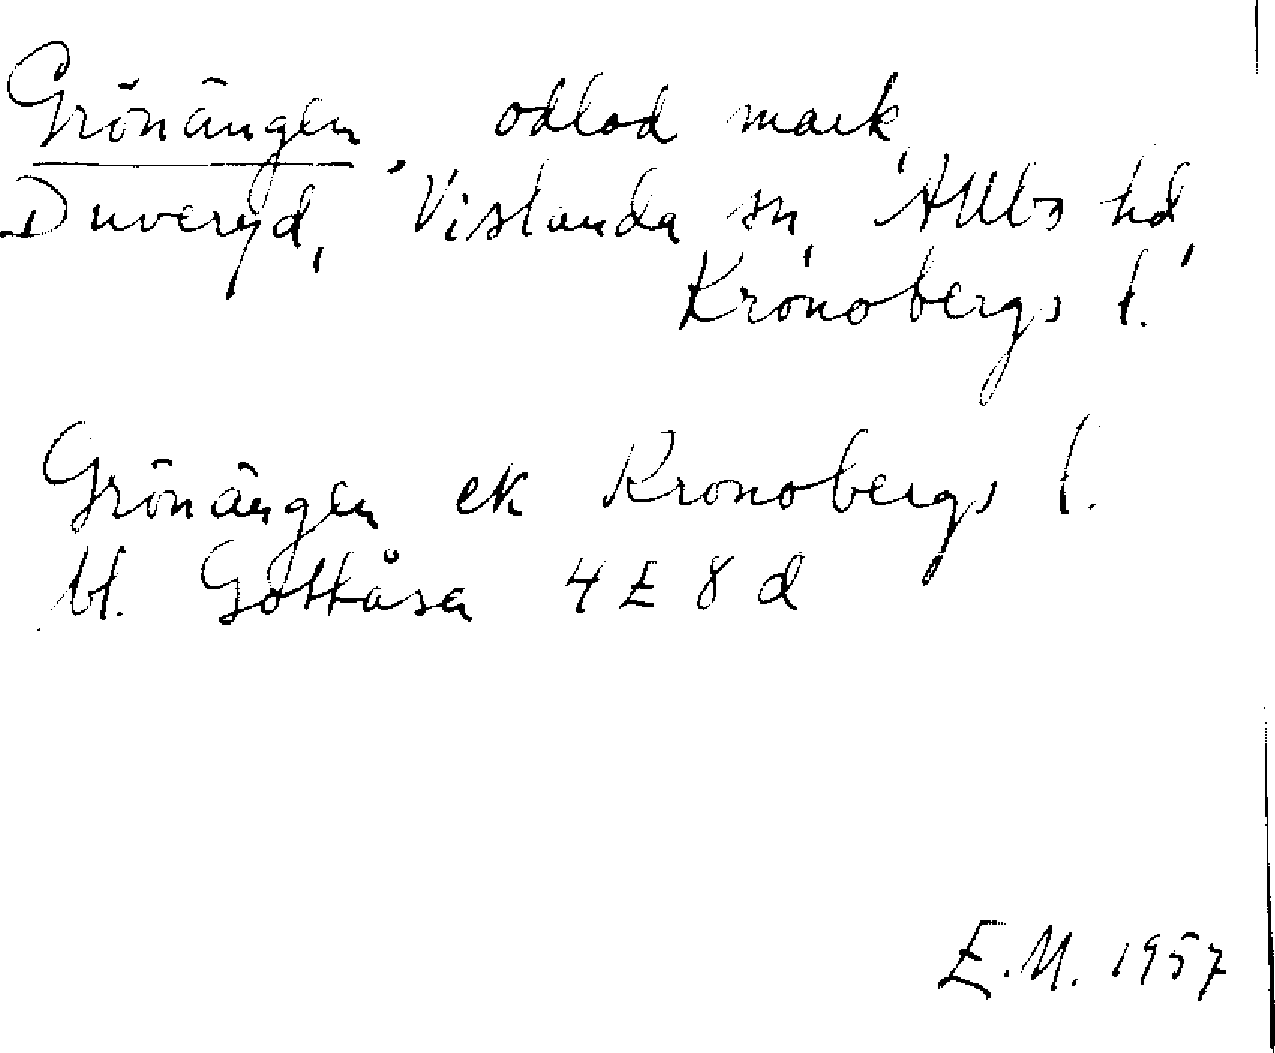 Grönängen, odlad mark,
Duveryd, Vislanda sn, Allbo hd,
Kronobergs l.
Grönängen ek Kronobergs l.
bl. Gottåsa 4 E 8 d
E.M. 1957